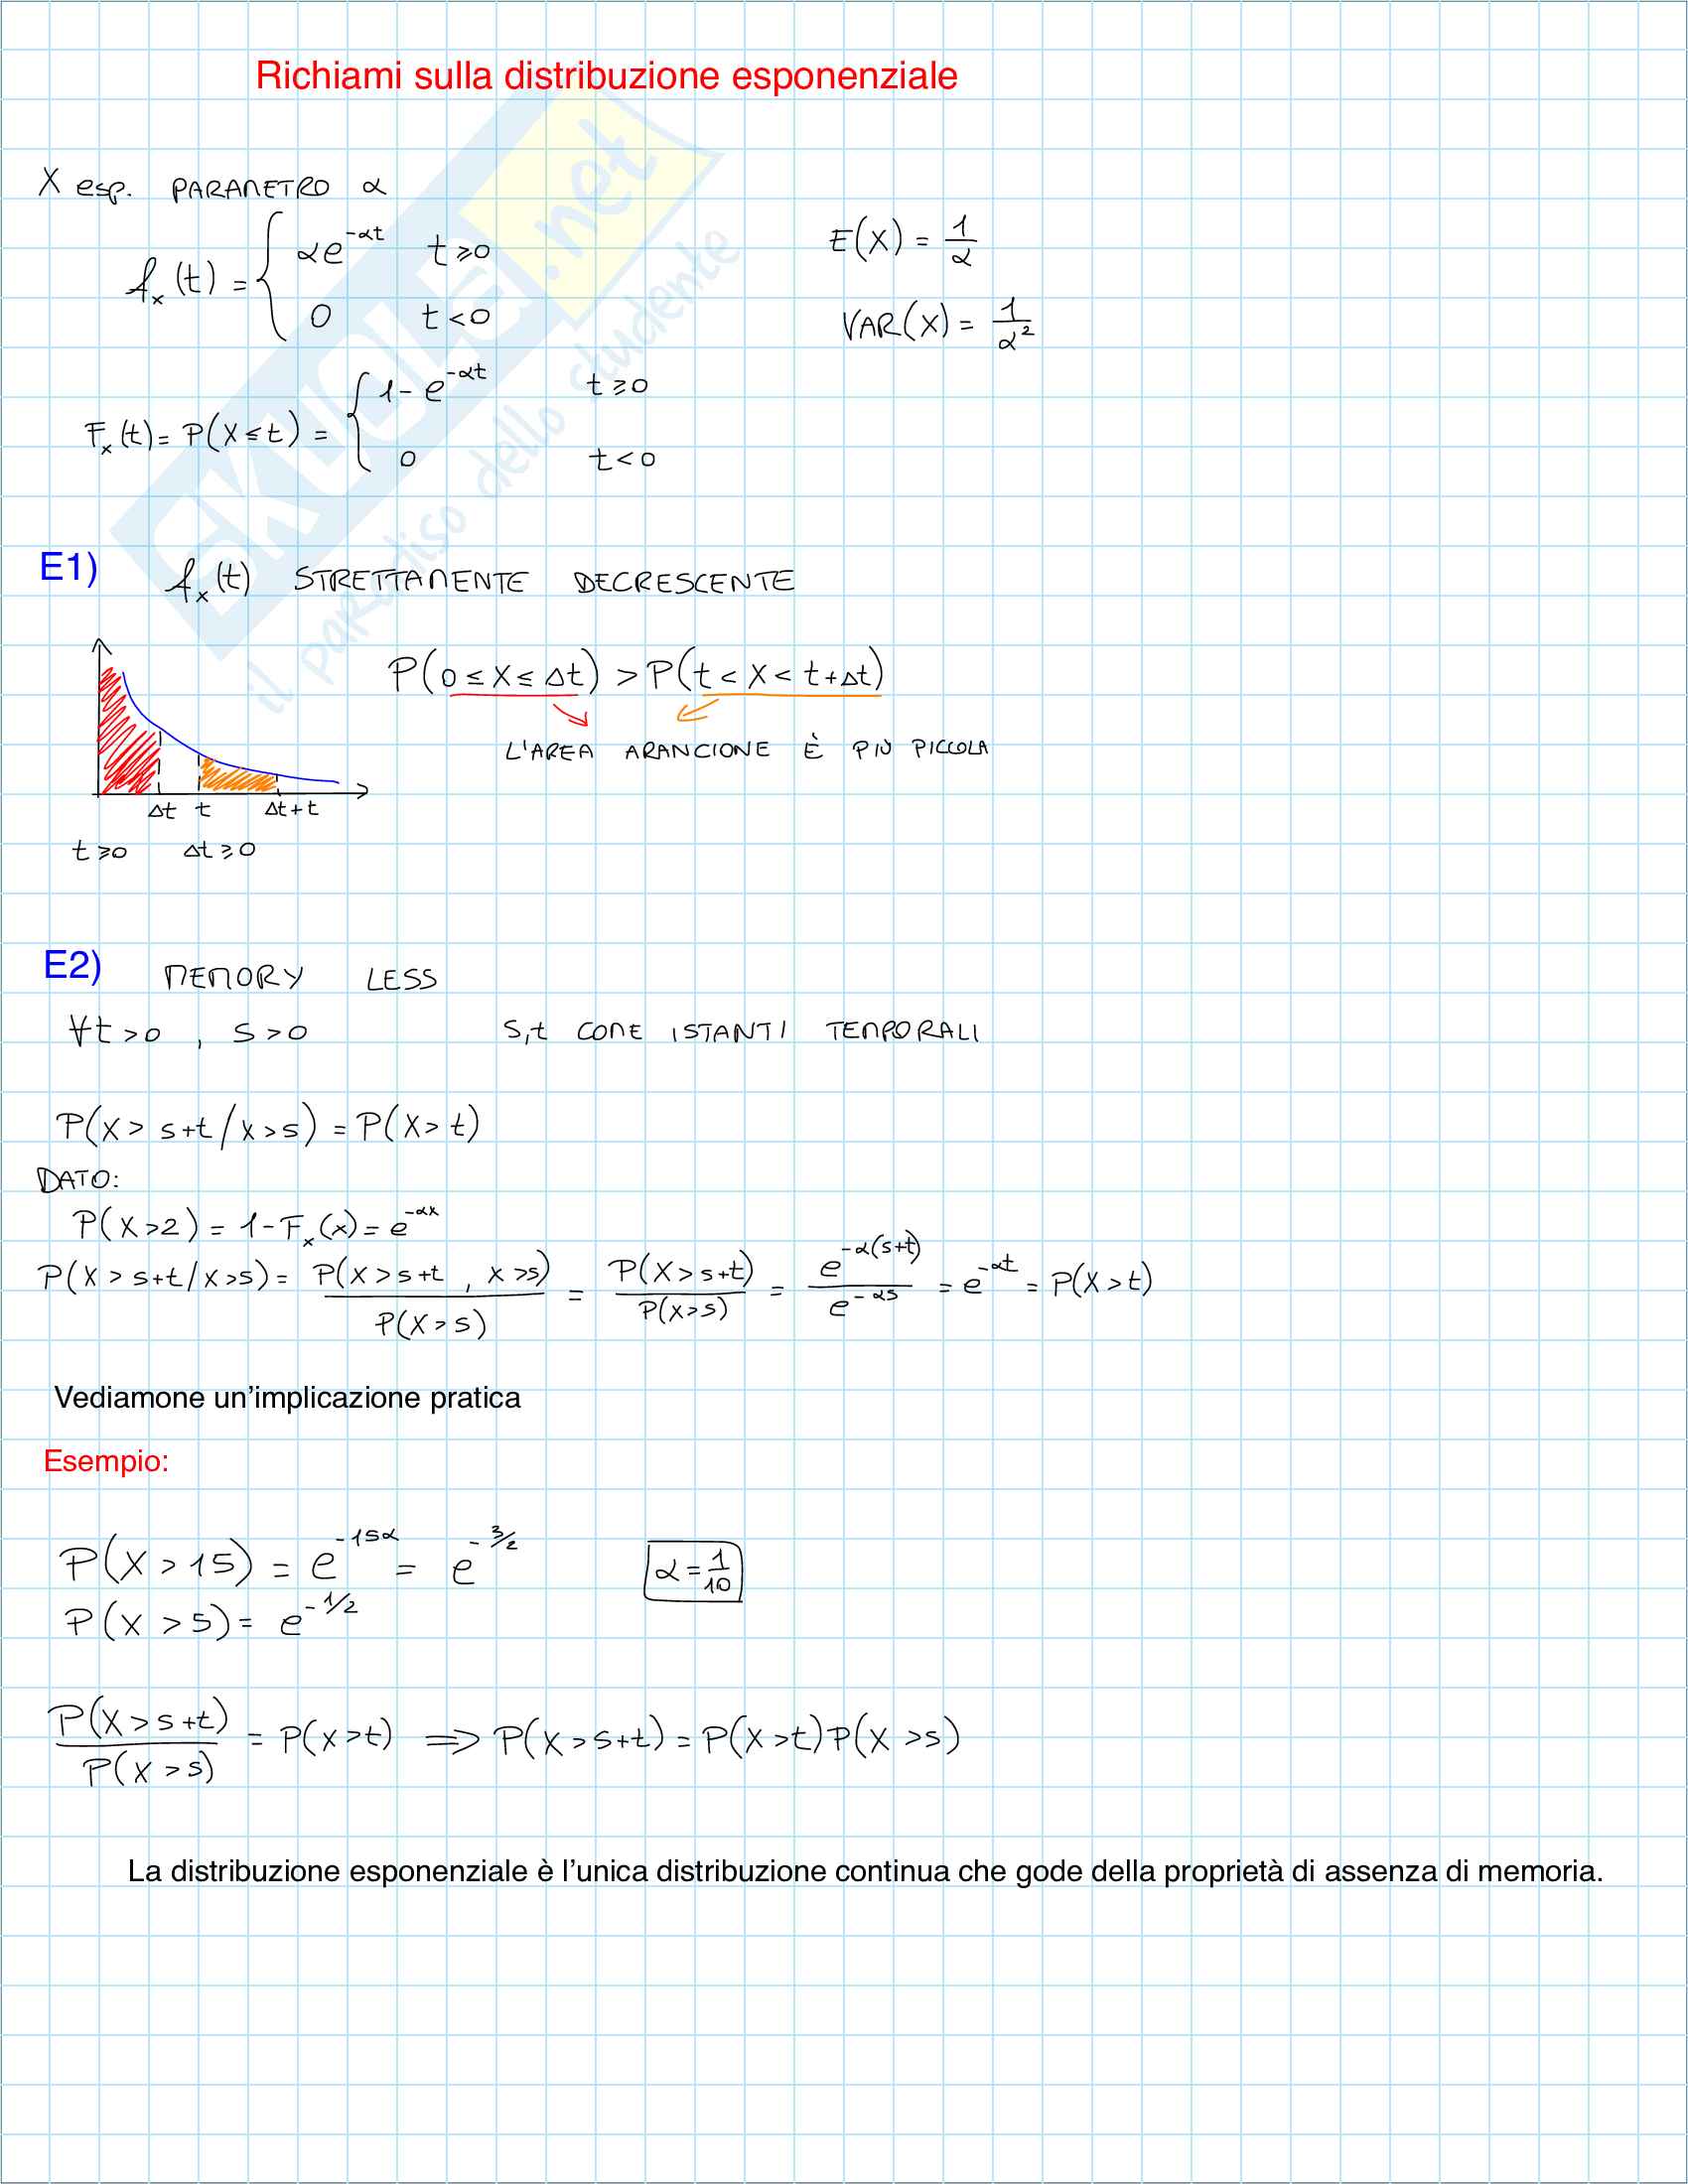 Richiami sulla distribuzione esponenziale
X esp. PARAMETRO α
fₓ(t) = { αe^{-αt} t ≥ 0
0 t < 0
E(X) = 1/α
VAR(X) = 1/α²
Fₓ(t) = P(X ≤ t) = { 1 - e^{-αt} t ≥ 0
0 t < 0
E1) fₓ(t) STRETTAMENTE DECRESCENTE
P(0 ≤ X ≤ Δt) > P(t < X < t+Δt)
L'AREA ARANCIONE È PIÙ PICCOLA
Δt t Δt+t
t ≥ 0 Δt ≥ 0
E2) MEMORY LESS
∀t > 0 , S > 0 S,t COME ISTANTI TEMPORALI
P(X > s+t / X > s) = P(X > t)
DATO:
P(X > 2) = 1 - Fₓ(x) = e^{-αx}
P(X > s+t / X > s) = P(X > s+t , X > s) / P(X > s) = P(X > s+t) / P(X > s) = e^{-α(s+t)} / e^{-αs} = e^{-αt} = P(X > t)
Vediamone un'implicazione pratica
Esempio:
P(X > 15) = e^{-15α} = e^{-3/2} α = 1/10
P(X > 5) = e^{-1/2}
P(X > s+t) / P(X > s) = P(X > t) ⟹ P(X > s+t) = P(X > t) P(X > s)
La distribuzione esponenziale è l'unica distribuzione continua che gode della proprietà di assenza di memoria.
SKUOLA.net
il paradiso dello studente